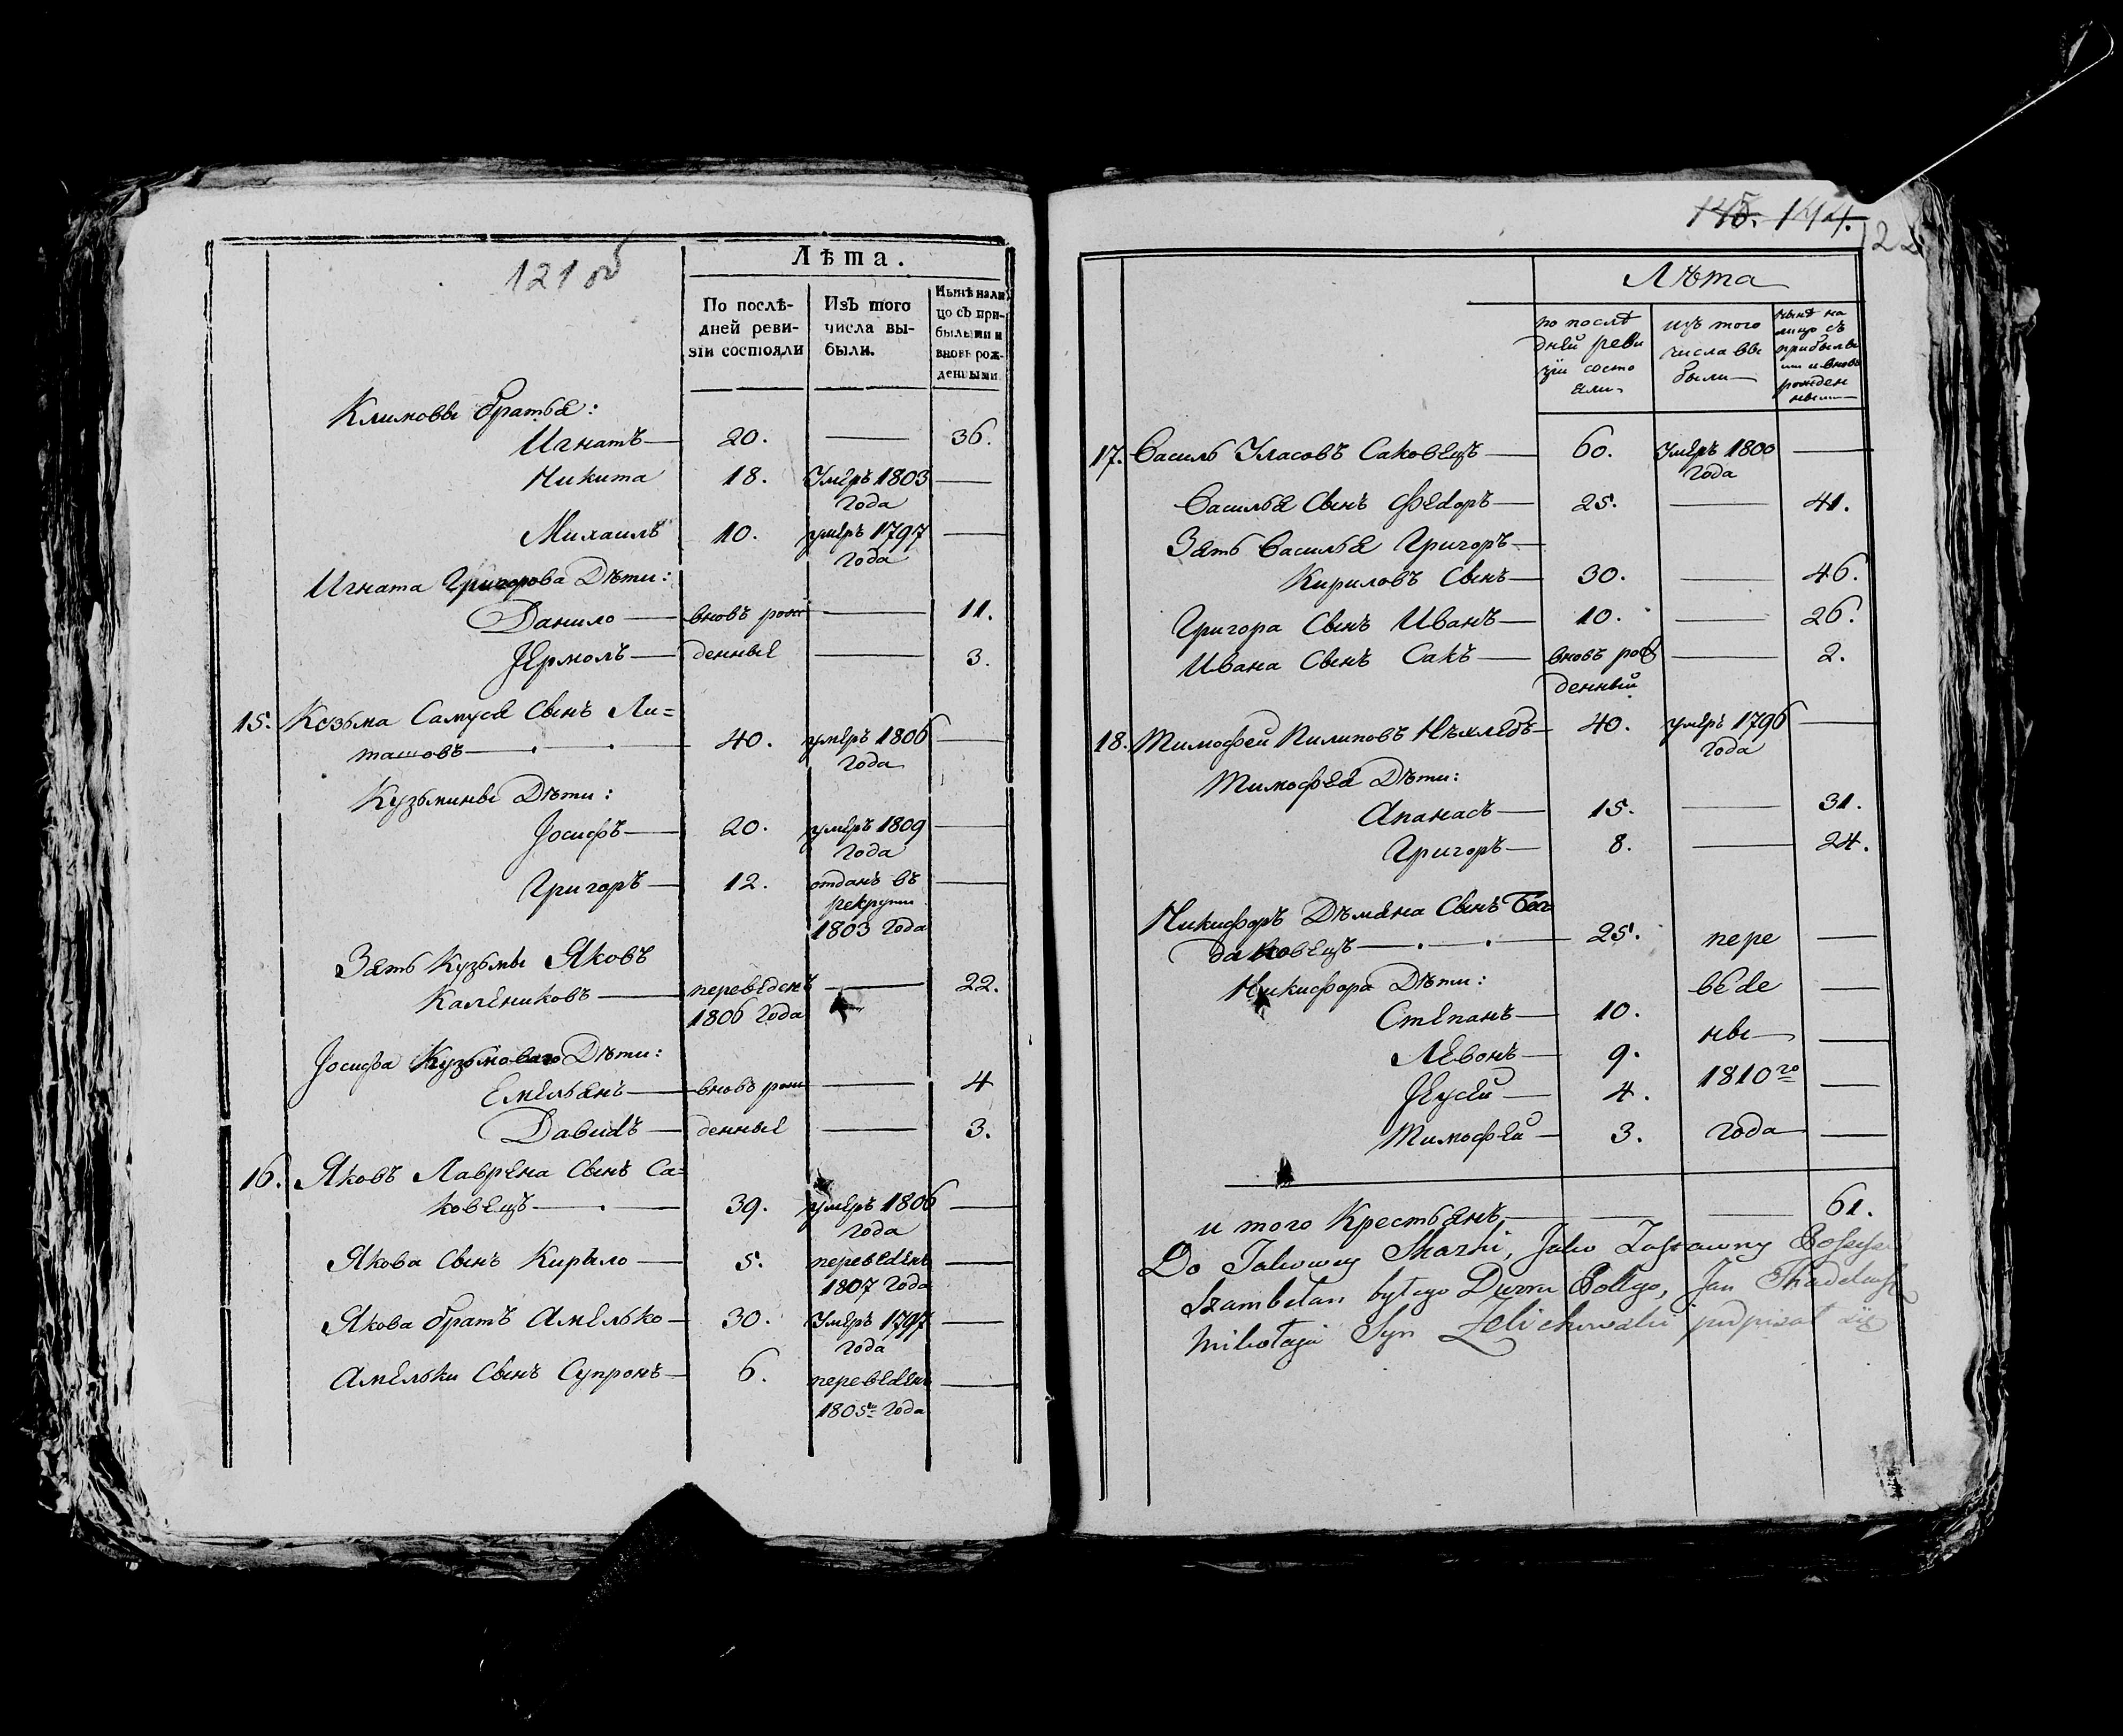 121 об
Лѣта.
По послѣ-
дней реви-
зіи состояли
Изъ того
числа вы-
были.
Нынѣ нали
цо съ при-
былыми и
вновь рож-
денными
Климовы братья:
Игнатъ — 20. — 36.
Никита 18. Умеръ 1803 —
года
Михаилъ 10. умеръ 1797 —
года
Игната Григорова Дѣти:
Данило — вновъ рож — 11.
Јермолъ — денные — 3.
15. Козьма Самуся Сынъ Ли=
ташовъ — 40. умеръ 1806 —
года
Кузьмины Дѣти:
Јосифъ — 20. умеръ 1809 —
года
Григоръ — 12. отданъ въ —
рекруты
1803 года
Зять Кузьмы Яковъ
Калениковъ — переведенъ — 22.
1806 года
Јосифа Кузьмоваго Дѣти:
Емельянъ — вновъ рож — 4
Давидъ — денные — 3.
16. Яковъ Лаврена Сынъ Са=
ковецъ — 39. умеръ 1806 —
года
Якова Сынъ Кирыло — 5. переведенъ —
1807 года
Якова братъ Амелько — 30. Умеръ 1797 —
года
Амельки Сынъ Супронъ — 6. переведенъ —
1805го года
145. 144.
122
Лѣта
по послѣ
дней реви
зіи состо
яли
изъ того
числа вы
были
нынѣ на
лицо съ
прибылы
ми и вновь
рожден
ными
17. Василь Уласовъ Саковецъ — 60. Умеръ 1800 —
года
Василья Сынъ Федоръ — 25. — 41.
Зять Василья Григоръ —
Кириловъ Сынъ — 30. — 46.
Григора Сынъ Иванъ — 10. — 26.
Ивана Сынъ Сакъ — вновъ рож — 2.
денный
18. Тимофей Пилиповъ Нѣхлебъ — 40. умеръ 1796 —
года
Тимофея Дѣти:
Апанасъ — 15. — 31.
Григоръ — 8. — 24.
Никифоръ Дѣмяна Сынъ Бого
даковецъ — 25. пере —
Никифора Дѣти: веде —
Степанъ — 10.
Левонъ — 9. ны —
Јеусей — 4. 1810го —
Тимофей — 3. года —
и того Крестьянъ — 61.
Do Takowey Skazki, Jako Zastawny Possessor
Szambelan byłego Dworu Polgo, Jan Thadeusz
Mikołaja Syn Zelichowski podpisał się